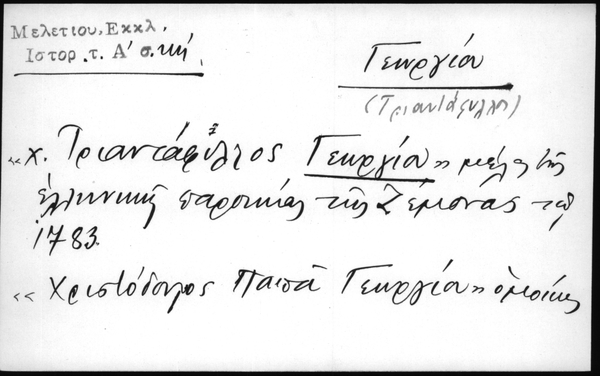 Μελετίου, Εκκλ.
Ιστορ. τ. Α' σ. κή.
Γεωργίου
(Τριαντάφυλλος)
«χ. Τριαντάφυλλος Γεωργίου» μέλος τῆς
ἑλληνικῆς παροικίας τῆς Ζέμονας τῷ
1783.
«Χριστόδουλος Παπᾶ Γεωργίου» ὁμοίως